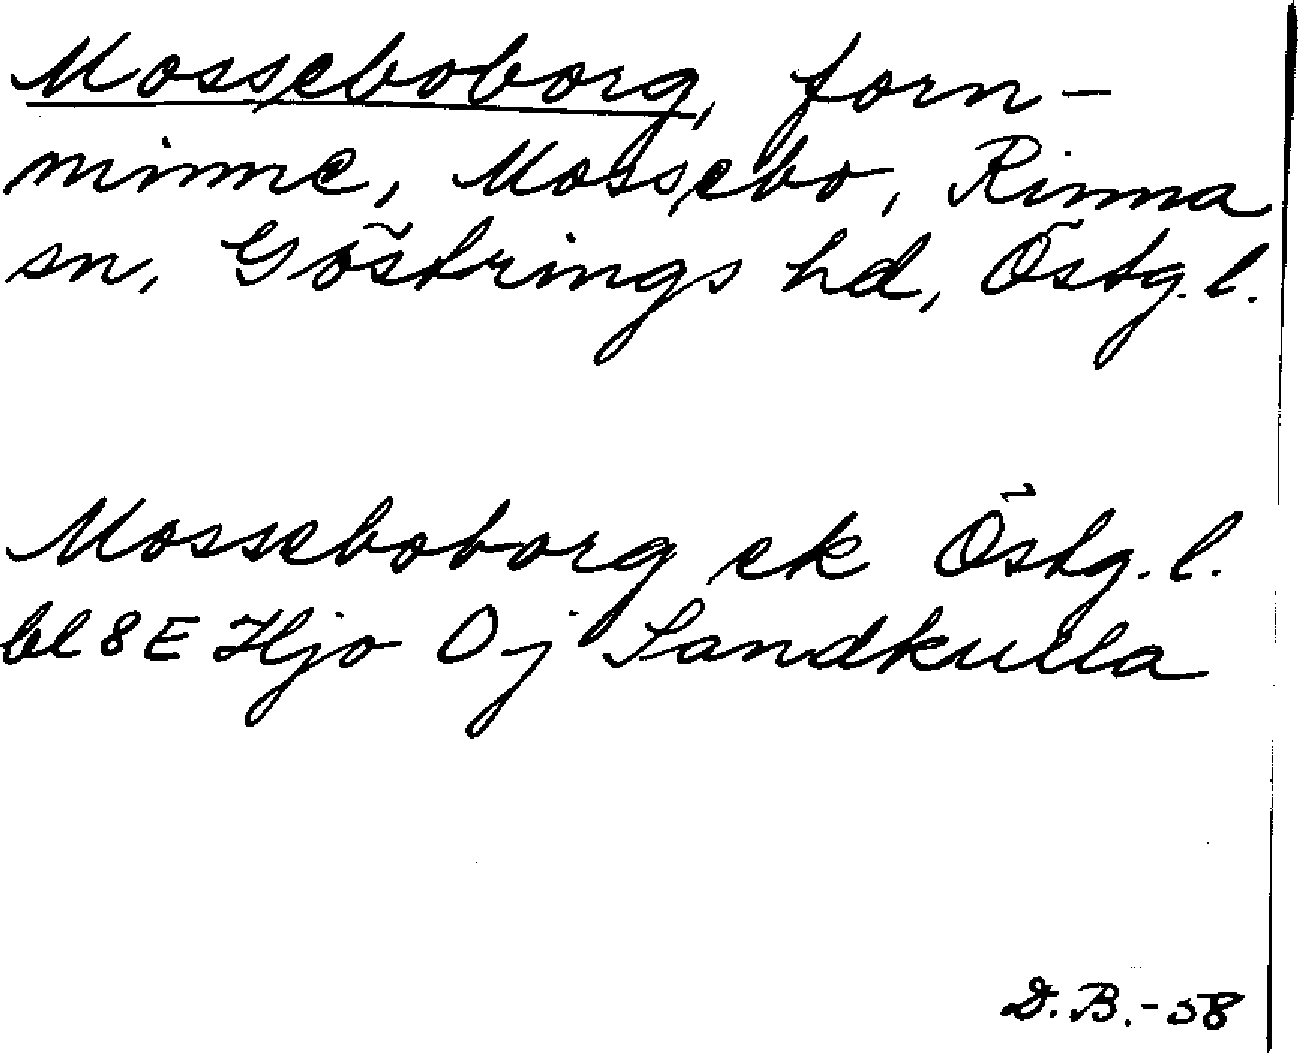 Mosseboborg, forn-
minne, Mossebo, Rinna
sn, Göstrings hd, Östg.l.
Mosseboborg ek Östg.l.
bl 8E Hjo Oj Sandkulla
D.B.-58